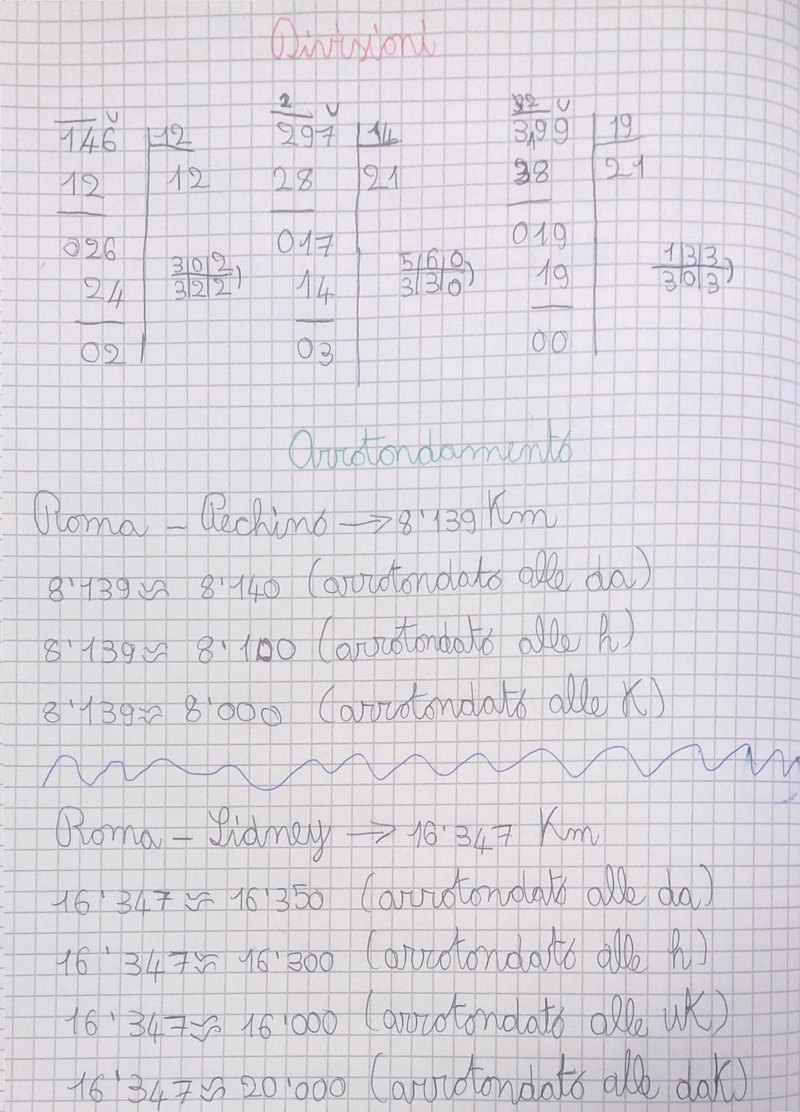 Divisioni
146 12 297 14 3,99 19
12 12 28 21 38 21
026 017 019
24 3 0 2 14 5 6 0 19 1 3 3
3 2 2 3 3 0 3 0 3
02 03 00
Arrotondamento
Roma – Pechino → 8'139 Km
8'139 ≈ 8'140 (arrotondato alle da)
8'139 ≈ 8'100 (arrotondato alle h)
8'139 ≈ 8'000 (arrotondato alle K)
Roma – Sidney → 16'347 Km
16'347 ≈ 16'350 (arrotondato alle da)
16'347 ≈ 16'300 (arrotondato alle h)
16'347 ≈ 16'000 (arrotondato alle uK)
16'347 ≈ 20'000 (arrotondato alle daK)